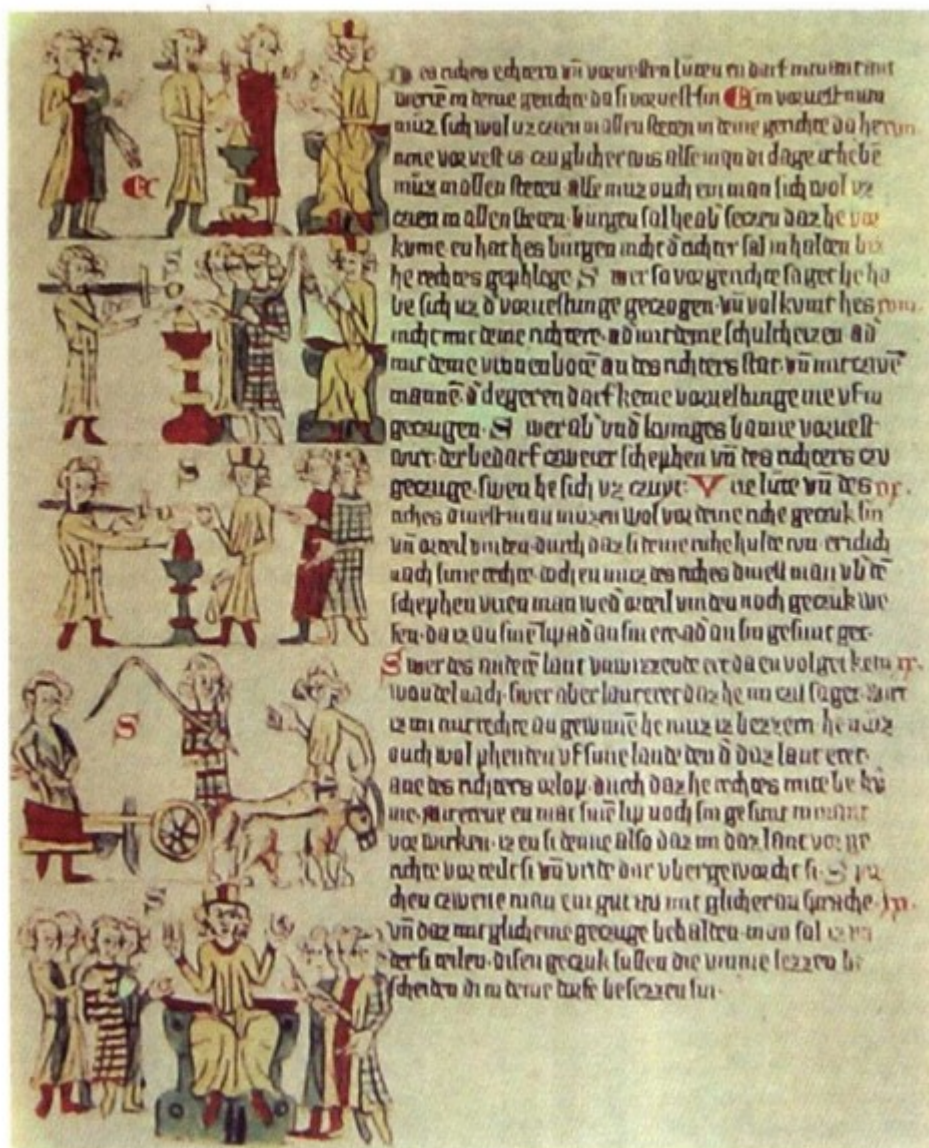 echtern vn̄ voruesten luten en darf
gerichte da si voruest sin Ein voruest man
muz sich wol uz czien in allen steten in deme gerichte da he
inne voruest is czu glicher wis alse man di clage irhebē
muz in allen steten alse muz ouch ein man sich wol uz
czien in allen steten burgen sal he ab seczen daz he vor
kume en hat hes burgen nicht d' richter sal in halden biz
he rechtes gephlege S wer so vor gerichte saget he ha
be sich uz d' voruestunge geczogen vn̄ vol kumt hes
nicht mit deme richtere ad' mit deme schulcheizen ad'
mit deme vronenboten an des richters stat vn̄ mit czwē
mannē d' cleger en darf keine voruestunge me uf in
geczugen S wer ab' vnd' kuniges banne voruest
wirt der bedarf czweier schephen vn̄ des richters czu
geczuge swen he sich uz czuyt Vrie lute vn̄ des
riches dinstman muzen wol vor deme riche geczuk sin
vn̄ orteil vinden durch daz si deme riche hulde tun
nach sime rechte doch en muz des riches dinstman vb' dē
schephen vrien man wed' orteil vinden noch geczuk we
sen da iz an sinē lip ad' an sin ere ad' an sin gesunt get
S wer des anderē lant vnwizzende eret da en volget kein
wandel nach swer aber lant eret daz he im czu saget wirt
iz im mit rechte an gewunnē he muz iz bezzern
ouch wol phenden uf sime lande den d' daz lant eret
ane des richters orlop durch daz he rechtes mite be kū
me en mac sinē lip noch sin gesunt nimant
vor wirken iz en si denne also daz im daz lant vor ge
richte vor teilt si vn̄ vride dar vber geworcht si S pre
chen czwene man ein gut an mit glicher ansprache
vn̄ daz mit glichme geczuge behalden man sal iz vnd'
der si teilen disen geczuk sullen die vmme sezzen be
scheiden di in deme dorfe besezzen sin